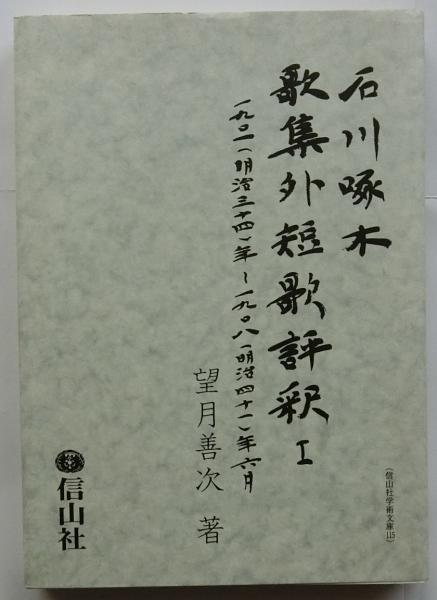 石川啄木
歌集外短歌評釈I
一九〇一(明治三十四)年〜一九〇八(明治四十一)年六月
望月善次 著
(信山社学術文庫115)
信山社